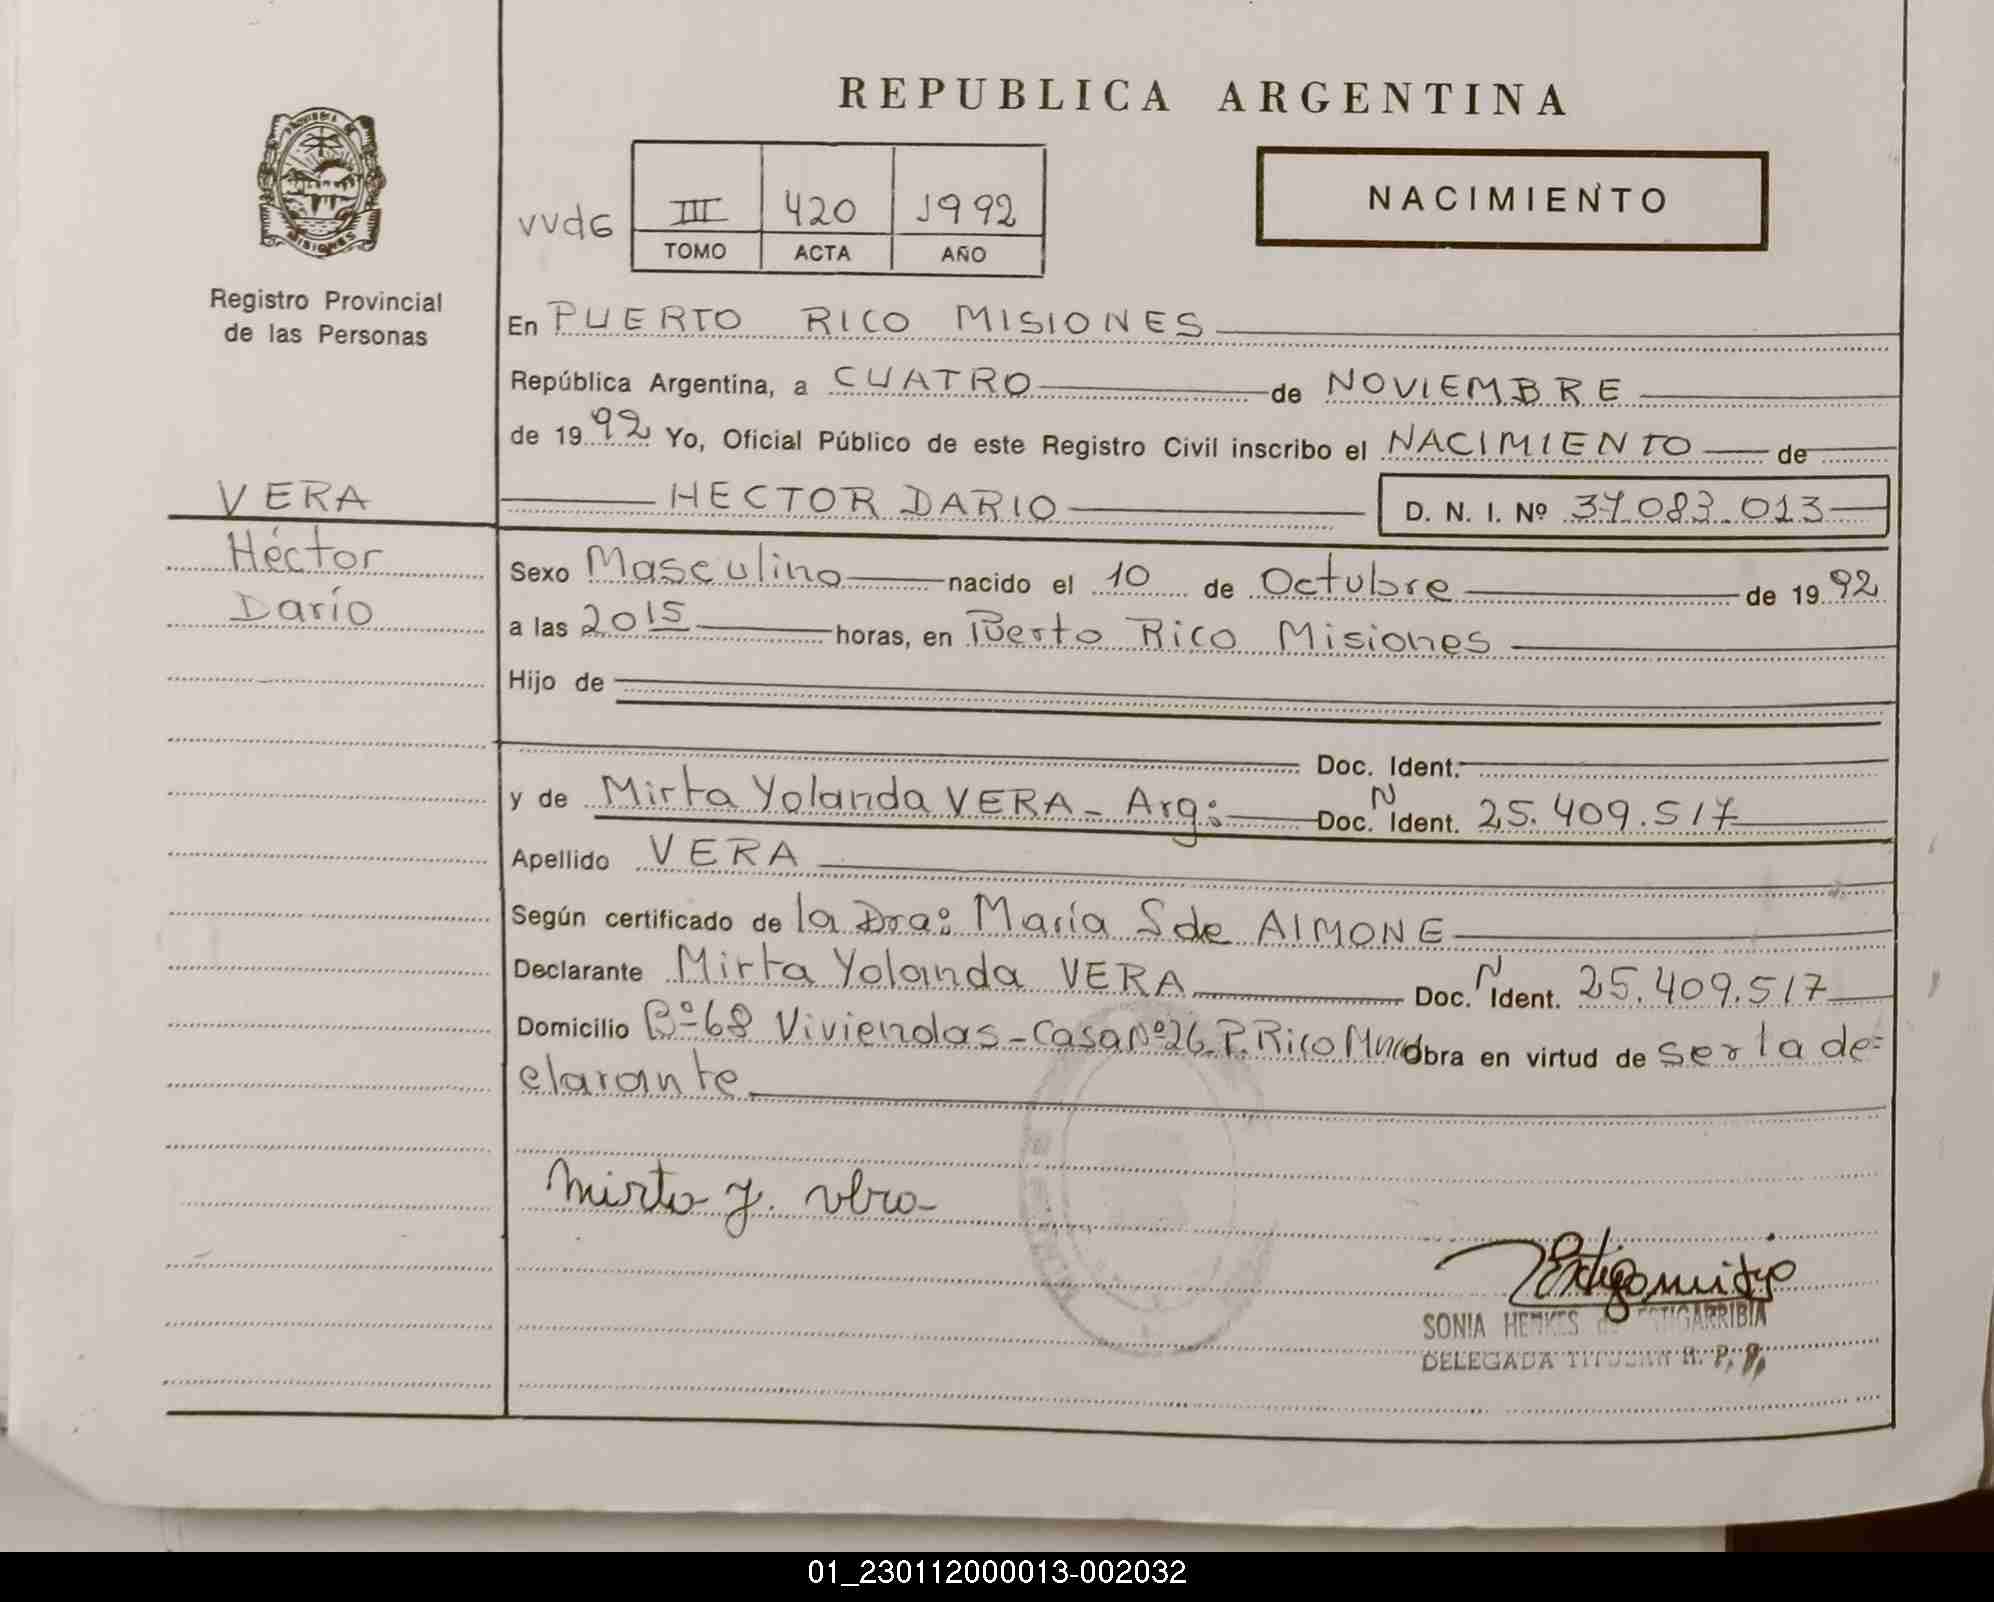 REPUBLICA ARGENTINA
PROVINCIA DE
MISIONES
Registro Provincial
de las Personas
VVdG
III 420 1992
TOMO ACTA AÑO
NACIMIENTO
VERA
Héctor
Darío
En PUERTO RICO MISIONES
República Argentina, a CUATRO de NOVIEMBRE
de 1992 Yo, Oficial Público de este Registro Civil inscribo el NACIMIENTO de
HECTOR DARIO D. N. I. Nº 37.083.013
Sexo Masculino nacido el 10 de Octubre de 1992
a las 2015 horas, en Puerto Rico Misiones
Hijo de
Doc. Ident.
y de Mirta Yolanda VERA - Arg: Doc. N Ident. 25.409.517
Apellido VERA
Según certificado de la Dra: María S de AIMONE
Declarante Mirta Yolanda VERA Doc. N Ident. 25.409.517
Domicilio Bº 68 Viviendas - Casa Nº 26 P. Rico Mnes Obra en virtud de ser la de=
clarante
Mirta Y. Vera
SONIA HENKES de ESTIGARRIBIA
DELEGADA TITULAR R. P. P.
01_230112000013-002032